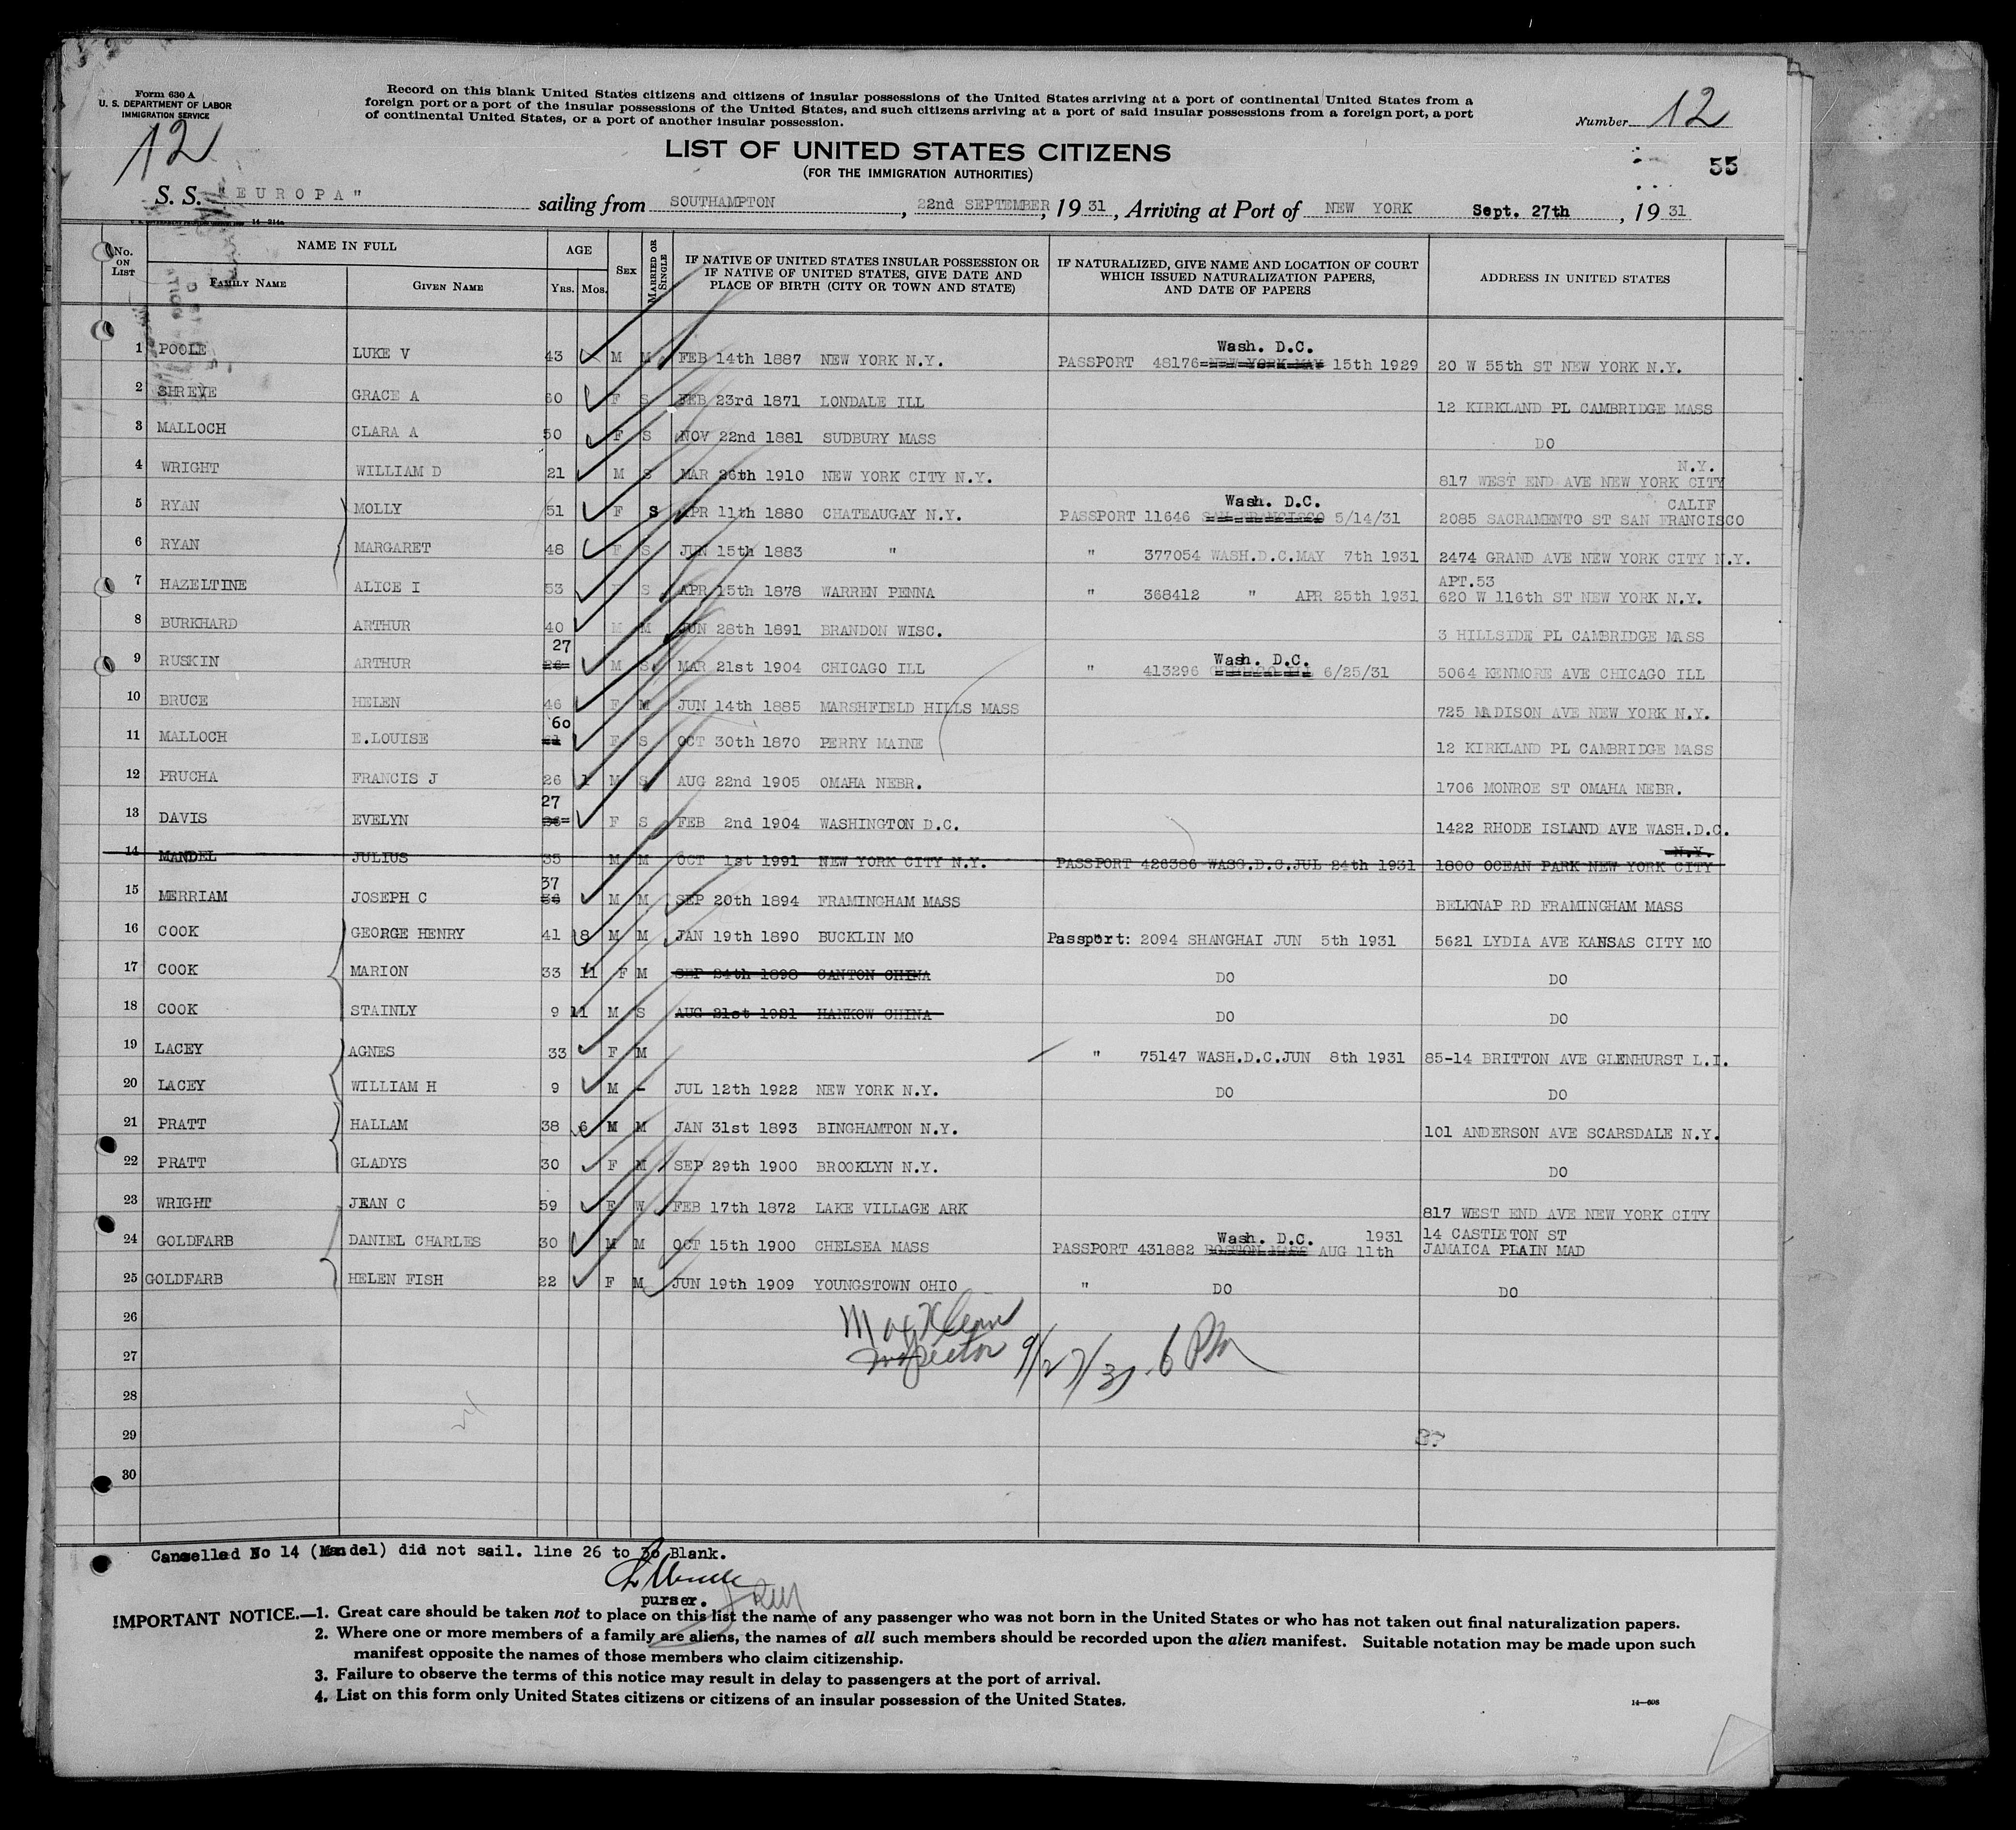 Form 630 A
U. S. DEPARTMENT OF LABOR
IMMIGRATION SERVICE
12
Record on this blank United States citizens and citizens of insular possessions of the United States arriving at a port of continental United States from a
foreign port or a port of the insular possessions of the United States, and such citizens arriving at a port of said insular possessions from a foreign port, a port
of continental United States, or a port of another insular possession.
Number 12
LIST OF UNITED STATES CITIZENS
(FOR THE IMMIGRATION AUTHORITIES)
55
S. S. "EUROPA" sailing from SOUTHAMPTON, 22nd SEPTEMBER, 1931, Arriving at Port of NEW YORK Sept. 27th, 1931
No. ON LIST NAME IN FULL FAMILY NAME GIVEN NAME AGE YRS. MOS. SEX MARRIED OR SINGLE IF NATIVE OF UNITED STATES INSULAR POSSESSION OR IF NATIVE OF UNITED STATES, GIVE DATE AND PLACE OF BIRTH (CITY OR TOWN AND STATE) IF NATURALIZED, GIVE NAME AND LOCATION OF COURT WHICH ISSUED NATURALIZATION PAPERS, AND DATE OF PAPERS ADDRESS IN UNITED STATES
1 POOLE LUKE V 43 M M FEB 14th 1887 NEW YORK N.Y. PASSPORT 48176 NEW YORK MAY Wash. D.C. 15th 1929 20 W 55th ST NEW YORK N.Y.
2 SHREVE GRACE A 60 F S FEB 23rd 1871 LONDALE ILL 12 KIRKLAND PL CAMBRIDGE MASS
3 MALLOCH CLARA A 50 F S NOV 22nd 1881 SUDBURY MASS DO
4 WRIGHT WILLIAM D 21 M S MAR 26th 1910 NEW YORK CITY N.Y. 817 WEST END AVE NEW YORK CITY N.Y.
5 RYAN MOLLY 51 F S APR 11th 1880 CHATEAUGAY N.Y. PASSPORT 11646 SAN FRANCISCO Wash. D.C. 5/14/31 2085 SACRAMENTO ST SAN FRANCISCO CALIF
6 RYAN MARGARET 48 F S JUN 15th 1883 " " 377054 WASH.D.C.MAY 7th 1931 2474 GRAND AVE NEW YORK CITY N.Y.
7 HAZELTINE ALICE I 53 F S APR 15th 1878 WARREN PENNA " 368412 " APR 25th 1931 APT.53 620 W 116th ST NEW YORK N.Y.
8 BURKHARD ARTHUR 40 M M JUN 28th 1891 BRANDON WISC. 3 HILLSIDE PL CAMBRIDGE MASS
9 RUSKIN ARTHUR 26 27 M S MAR 21st 1904 CHICAGO ILL " 413296 CHICAGO ILL Wash. D.C. 6/25/31 5064 KENMORE AVE CHICAGO ILL
10 BRUCE HELEN 46 F M JUN 14th 1885 MARSHFIELD HILLS MASS 725 MADISON AVE NEW YORK N.Y.
11 MALLOCH E.LOUISE 61 60 F S OCT 30th 1870 PERRY MAINE 12 KIRKLAND PL CAMBRIDGE MASS
12 PRUCHA FRANCIS J 26 1 M S AUG 22nd 1905 OMAHA NEBR. 1706 MONROE ST OMAHA NEBR.
13 DAVIS EVELYN 27 F S FEB 2nd 1904 WASHINGTON D.C. 1422 RHODE ISLAND AVE WASH.D.C.
14 MANDEL JULIUS 35 M M OCT 1st 1991 NEW YORK CITY N.Y. PASSPORT 426386 WASG.D.C.JUL 24th 1931 1800 OCEAN PARK NEW YORK CITY N.Y.
15 MERRIAM JOSEPH C 36 37 M M SEP 20th 1894 FRAMINGHAM MASS BELKNAP RD FRAMINGHAM MASS
16 COOK GEORGE HENRY 41 8 M M JAN 19th 1890 BUCKLIN MO Passport: 2094 SHANGHAI JUN 5th 1931 5621 LYDIA AVE KANSAS CITY MO
17 COOK MARION 33 11 F M SEP 24th 1898 CANTON CHINA DO DO
18 COOK STAINLY 9 11 M S AUG 21st 1921 HANKOW CHINA DO DO
19 LACEY AGNES 33 F M " 75147 WASH.D.C.JUN 8th 1931 85-14 BRITTON AVE GLENHURST L.I.
20 LACEY WILLIAM H 9 M - JUL 12th 1922 NEW YORK N.Y. DO DO
21 PRATT HALLAM 38 6 M M JAN 31st 1893 BINGHAMTON N.Y. 101 ANDERSON AVE SCARSDALE N.Y.
22 PRATT GLADYS 30 F M SEP 29th 1900 BROOKLYN N.Y. DO
23 WRIGHT JEAN C 59 F W FEB 17th 1872 LAKE VILLAGE ARK 817 WEST END AVE NEW YORK CITY
24 GOLDFARB DANIEL CHARLES 30 M M OCT 15th 1900 CHELSEA MASS PASSPORT 431882 BOSTON MASS Wash. D.C. AUG 11th 1931 14 CASTLETON ST JAMAICA PLAIN MAD
25 GOLDFARB HELEN FISH 22 F M JUN 19th 1909 YOUNGSTOWN OHIO " DO DO
26
Max Klein
27
Inspector 9/27/31 6 PM
28
29
30
Cancelled No 14 (Mandel) did not sail. line 26 to 30 Blank.
purser.
IMPORTANT NOTICE.—1. Great care should be taken not to place on this list the name of any passenger who was not born in the United States or who has not taken out final naturalization papers.
2. Where one or more members of a family are aliens, the names of all such members should be recorded upon the alien manifest. Suitable notation may be made upon such
manifest opposite the names of those members who claim citizenship.
3. Failure to observe the terms of this notice may result in delay to passengers at the port of arrival.
4. List on this form only United States citizens or citizens of an insular possession of the United States.
14—608